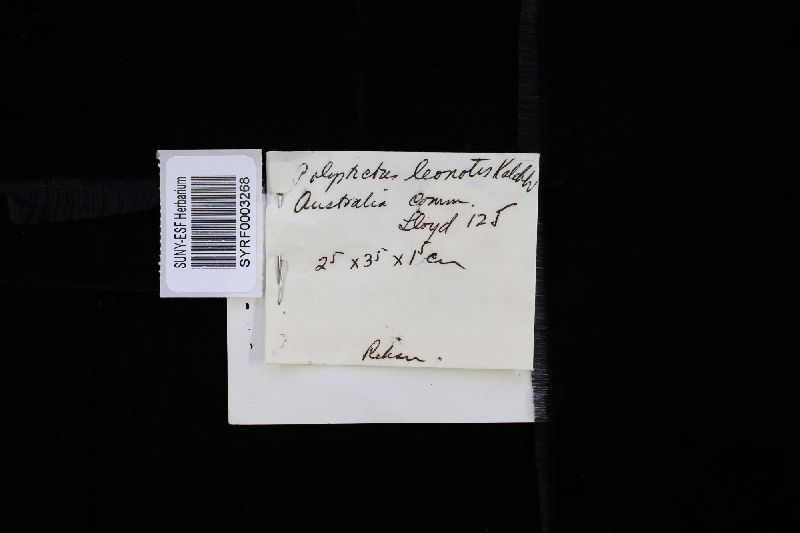 SUNY-ESF Herbarium
SYRF0003268
Polystictus leonotis Kalchbr
Australia Comm.
Lloyd 125
2⁵ x 3⁵ x 1⁵ cm